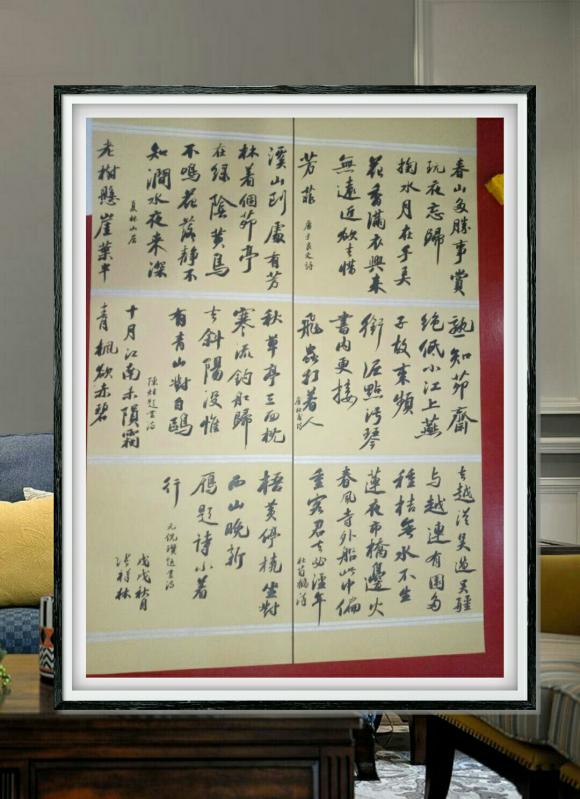 春山多勝事賞
玩夜忘歸
掬水月在手弄
花香滿衣興來
無遠近欲去惜
芳菲
唐于良史詩
溪山到處有芳
林著個茆亭
在綠陰黃鳥
不鳴花落靜不
知澗水夜來深
夏林山居
老樹懸崖葉半
熟知茆齋
絕低小江上燕
子故來頻
銜泥點污琴
書內更接
飛蟲打著人
唐杜甫詩
秋草亭三面枕
寒流釣船歸
去斜陽沒惟
有青山對白鷗
題畫詩
十月江南未隕霜
青楓欲赤碧
去越從吳過吳疆
与越連有園多
種桔無水不生
蓮夜市橋邊火
春風寺外船此中偏
重客君去必淹年
杜荀鶴詩
梧黃停橈坐對
西山晚新
雁題詩小著
行
元倪瓚題畫詩
戊戌秋月
祥林